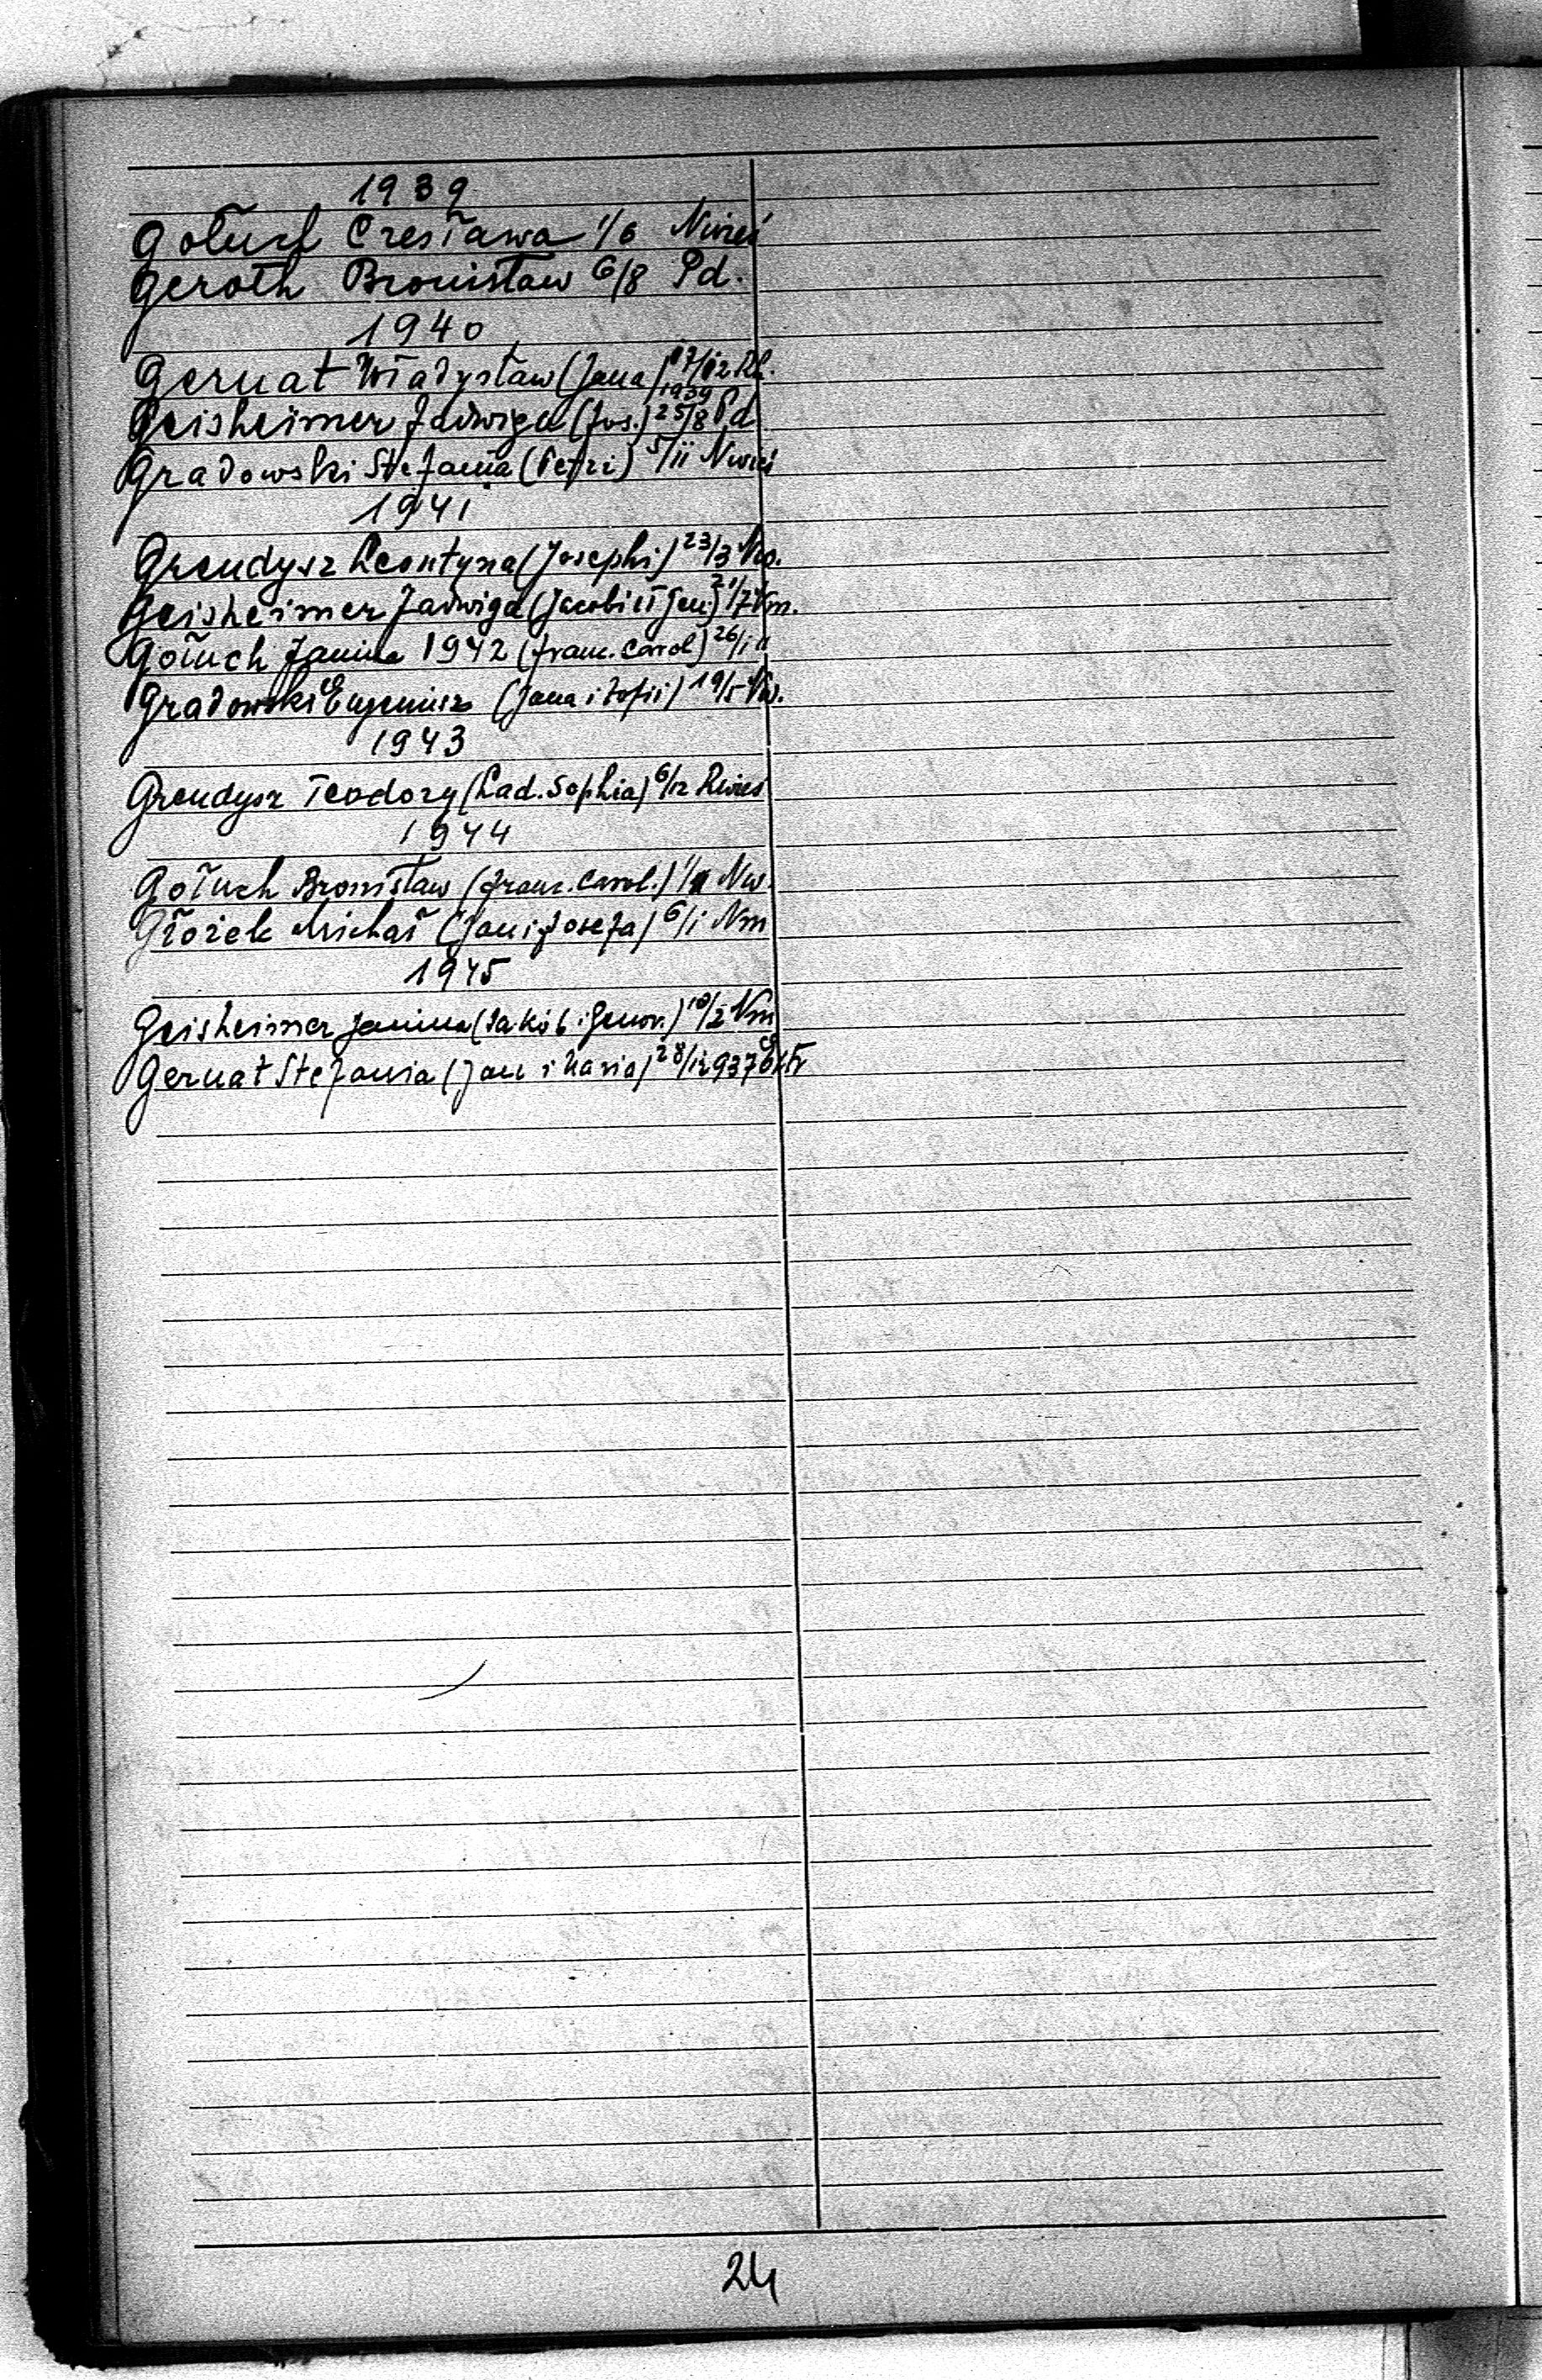 1939
Gołuch Czesława 1/6 Nwieś
Geroth Bronisław 6/8 Pd.
1940
Gernat Władysław (Jana) 17/12
1939
Geisheimer Jadwiga (Jos.) 25/8 Pd
Gradowski Stefania (Petri) 5/11 Nwieś
1941
Grendysz Leontyna (Josephi) 23/3 Nw.
Geisheimer Jadwiga (Jacobi et Gen.) 21/7 Nm.
Gołuch Janina 1942 (Franc. Carol) 26/1 "
Gradowski Eugeniusz (Jana i Zofii) 19/5 Nw.
1943
Grendysz Teodozy (Lad. Sophia) 6/12
1944
Gołuch Bronisław (Franc. Carol.) Nw.
Głożek Michał (Jan i Josefa) 6/1 Nm
1945
Geisheimer Janina (Jakób i Genov.) 10/2 Nm
Gernat Stefania (Jan i Maria) 28/12 937
24